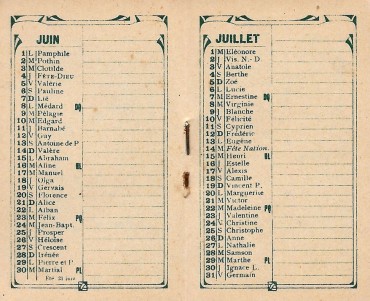 JUIN
1 L Pamphile
2 M Pothin
3 M Clotilde
4 J FÊTE-DIEU
5 V Valérie
6 S Pauline
7 D Lié
8 L Médard DQ
9 M Pélagie
10 M Edgard
11 J Barnabé
12 V Guy
13 S Antoine de P.
14 D Valère
15 L Abraham
16 M Aline NL
17 M Manuel
18 J Olga
19 V Gervais
20 S Florence
21 D Alice
22 L Alban
23 M Félix PQ
24 M Jean-Bapt.
25 J Prosper
26 V Héloïse
27 S Crescent
28 D Irénée
29 L Pierre et P.
30 M Martial PL
JUILLET
1 M Eléonore
2 J Vis. N.-D.
3 V Anatole
4 S Berthe
5 D Zoé
6 L Lucie
7 M Ernestine DQ
8 M Virginie
9 J Blanche
10 V Félicité
11 S Cyprien
12 D Frédéric
13 L Eugène
14 M Fête Nation.
15 M Henri NL
16 J Estelle
17 V Alexis
18 S Camille
19 D Vincent P.
20 L Marguerite
21 M Victor
22 M Madeleine PQ
23 J Valentine
24 V Christine
25 S Christophe
26 D Anne
27 L Nathalie
28 M Samson
29 M Marthe PL
30 J Ignace L.
31 V Germain